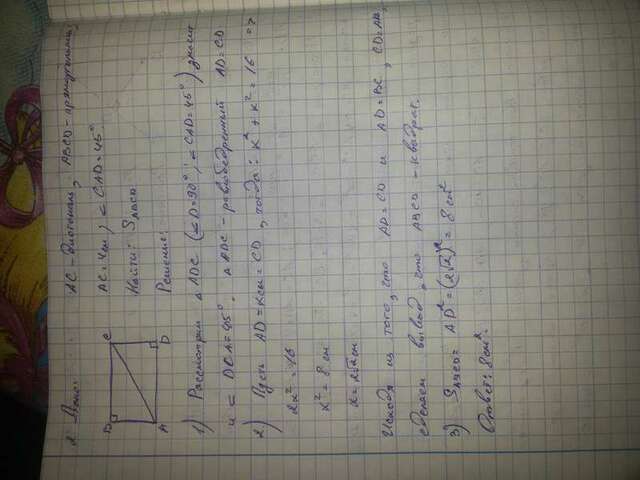 2. Дано:
AC - диагональ, ABCD - прямоугольник,
AC = 4см, < CAD = 45°
Найти: S
Решение:
B C
A D
1) Рассмотрим △ ADC (< D = 90°, < CAD = 45°)
и < DCA = 45°, △ ADC - равнобедренный AD = CD
2) Пусть AD = x см = CD, тогда: x² + x² = 16 =>
2x² = 16
x² = 8 см
x = 2√2 см
Исходя из того, что AD = CD и AD = BC, CD = AB,
сделаем вывод, что ABCD - квадрат.
3) S ABCD = AD² = (2√2)² = 8 см²
Ответ: 8 см².